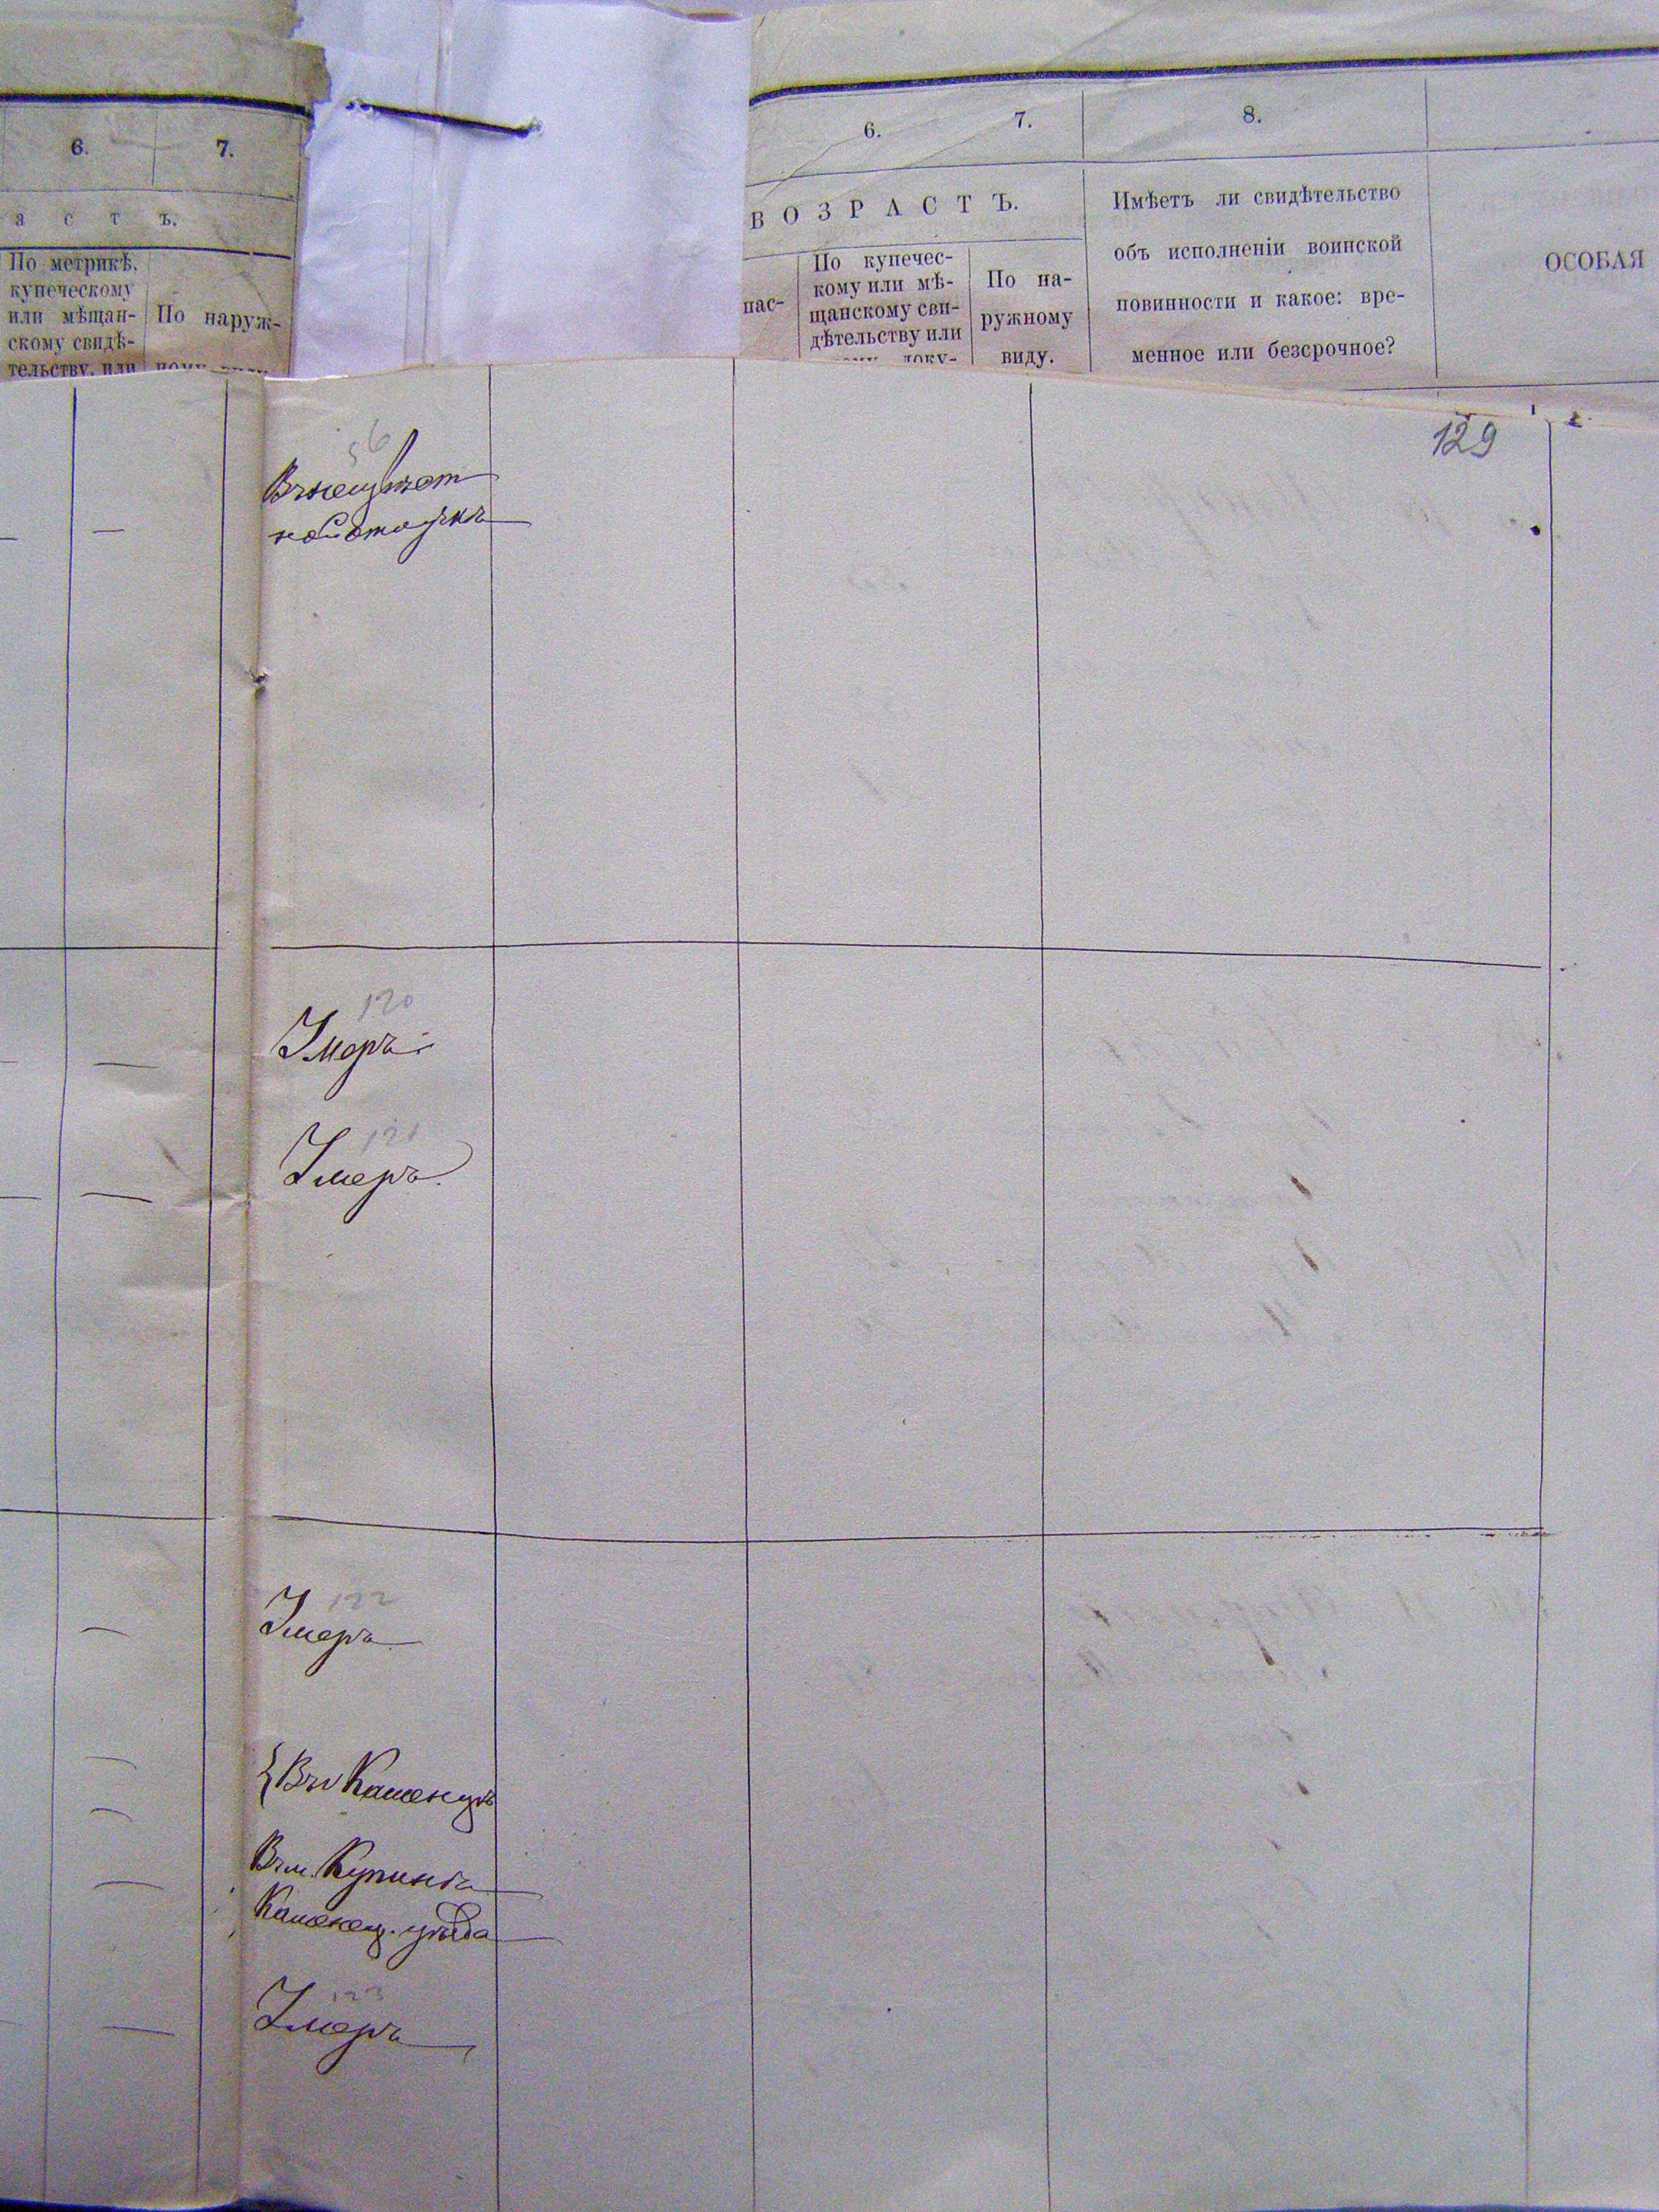 6. 7.
а с т ъ.
По метрикѣ,
купеческому
или мѣщан-
скому свидѣ-
тельству, или
По наруж-
ному виду
6. 7. 8.
ВОЗРАСТЪ.
пас-
По купечес-
кому или мѣ-
щанскому сви-
дѣтельству или
доку-
По на-
ружному
виду.
Имѣетъ ли свидѣтельство
объ исполненіи воинской
повинности и какое: вре-
менное или безсрочное?
ОСОБАЯ
129
56
120
Умеръ
121
Умеръ.
122
Умеръ
Въ Каменцѣ
Въ м. Купинѣ
Каменец. уѣзда
123
Умеръ